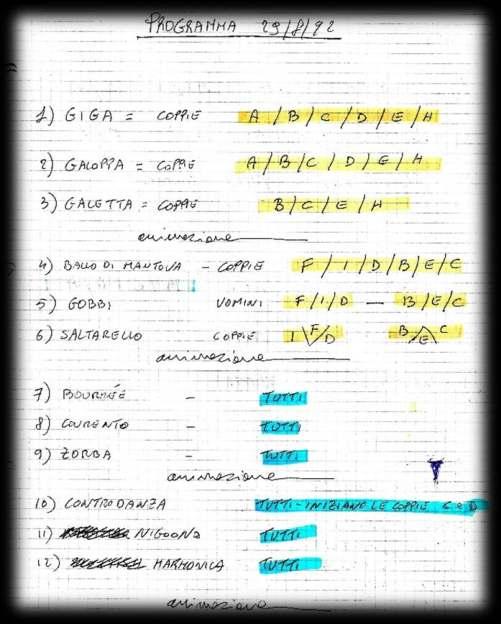 PROGRAMMA 29/8/92
1) GIGA = COPPIE A / B / C / D / E / H
2) GALOPPA = COPPIE A / B / C / D / E / H
3) GALETTA = COPPIE B / C / E / H
animazione
4) BALLO DI MANTOVA - COPPIE F / I / D / B / E / C
5) GOBBI UOMINI F / I / D - B / E / C
6) SALTARELLO COPPIE I \ F / D B / E \ C
animazione
7) BOURRÉE - TUTTI
8) COURENTO - TUTTI
9) ZORBA - TUTTI
animazione
10) CONTRODANZA TUTTI - INIZIANO LE COPPIE D
11) NIGOONS TUTTI
12) HARMONICA TUTTI
animazione